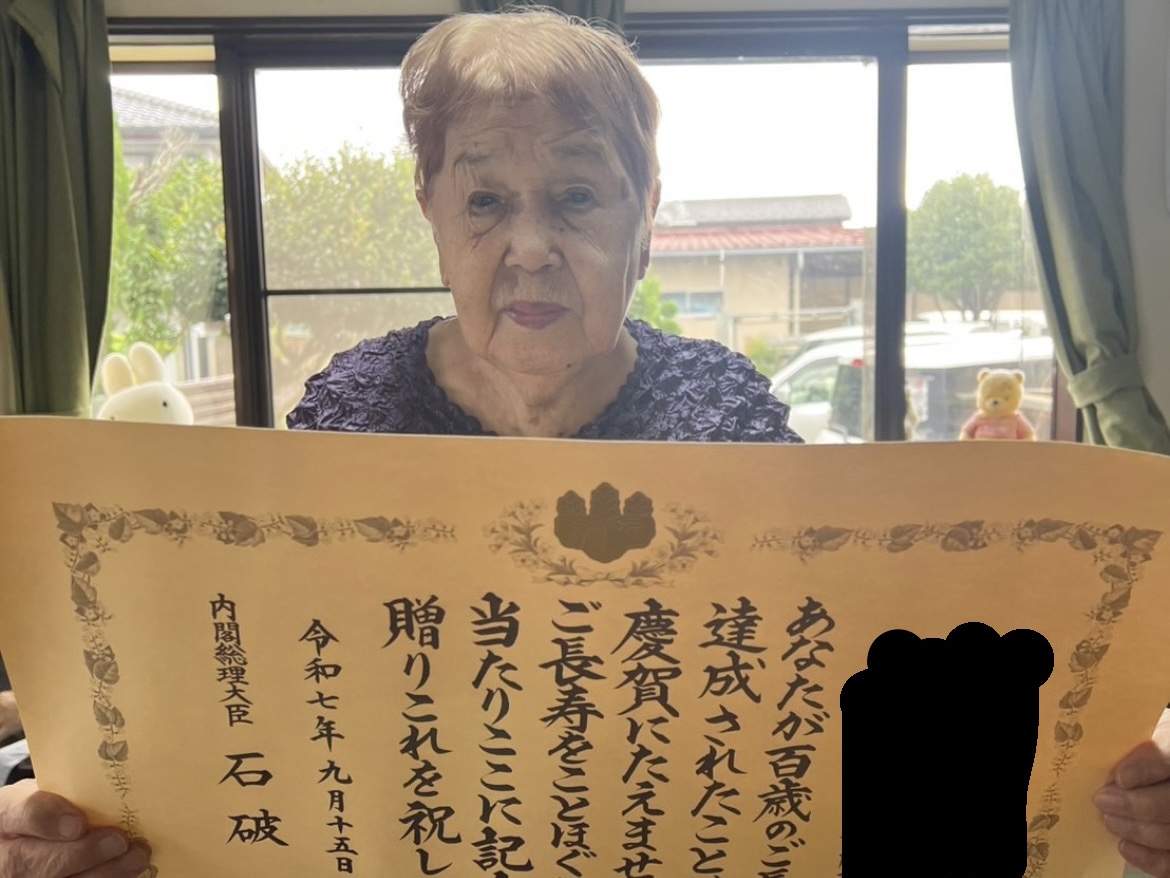 あなたが百歳のご長
達成されたこと
慶賀にたえませ
ご長寿をことほぐ
当たりここに記
贈りこれを祝し
令和七年九月十五日
内閣総理大臣 石破